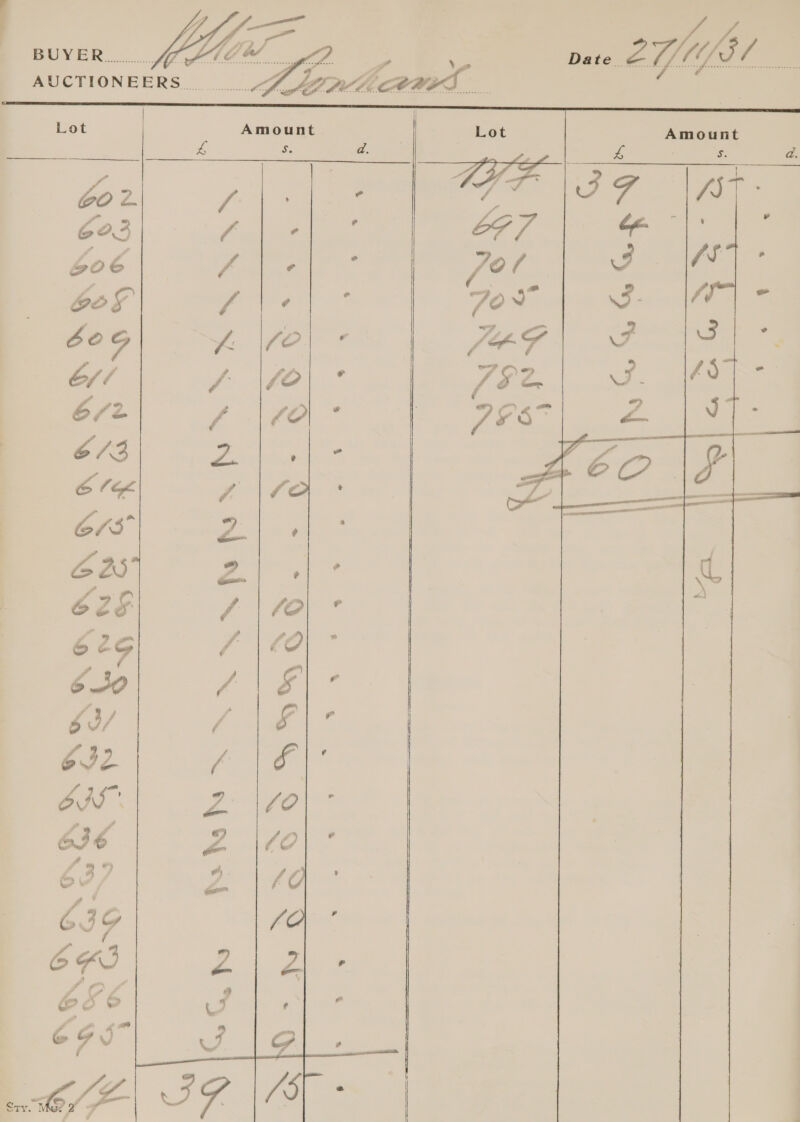 BUYER A H Low Date 27/11/31
AUCTIONEERS Bonham's
Lot Amount Lot Amount
£ s. d. £ s. d.
B/F. 39 15 -
602 1 - -
697 4 - -
603 1 - -
701 3 15 -
606 1 - -
705 3 15 -
608 1 - -
749 3 3 -
609 1 10 -
782 3 15 -
611 1 10 -
785 2 5 -
612 1 10 -
£60 8
613 2 - -
614 1 10 -
615 2 - -
625 2 - -
628 1 10 -
629 1 10 -
630 1 8 -
631 1 8 -
632 1 8 -
635 2 10 -
636 2 10 -
637 2 10 -
639 10 -
643 2 2 -
686 3 - -
695 3 9 -
C/F 39 15 -
Sty. Mo. 2